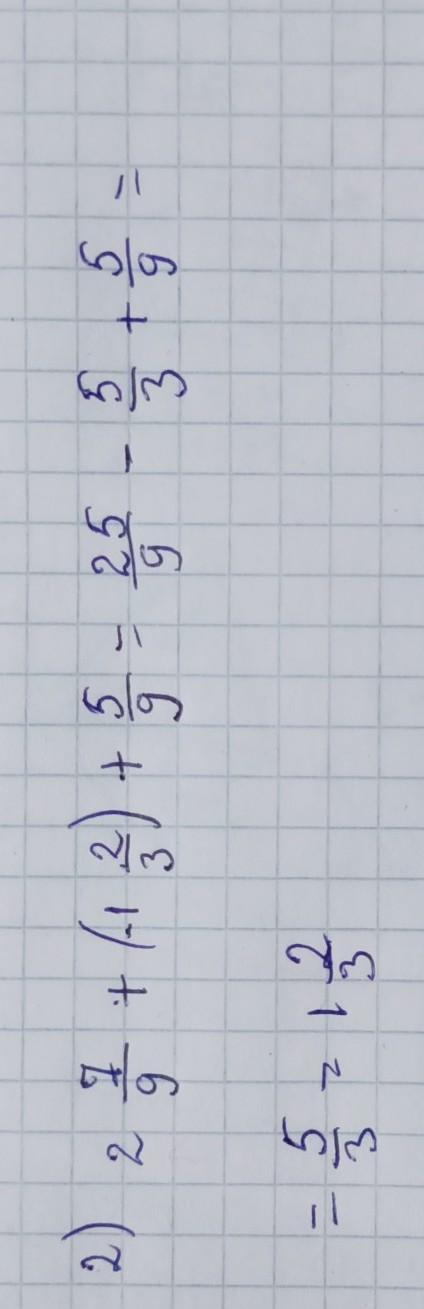 2) 2 7/9 + (-1 2/3) + 5/9 = 25/9 - 5/3 + 5/9 =
= 5/3 = 1 2/3